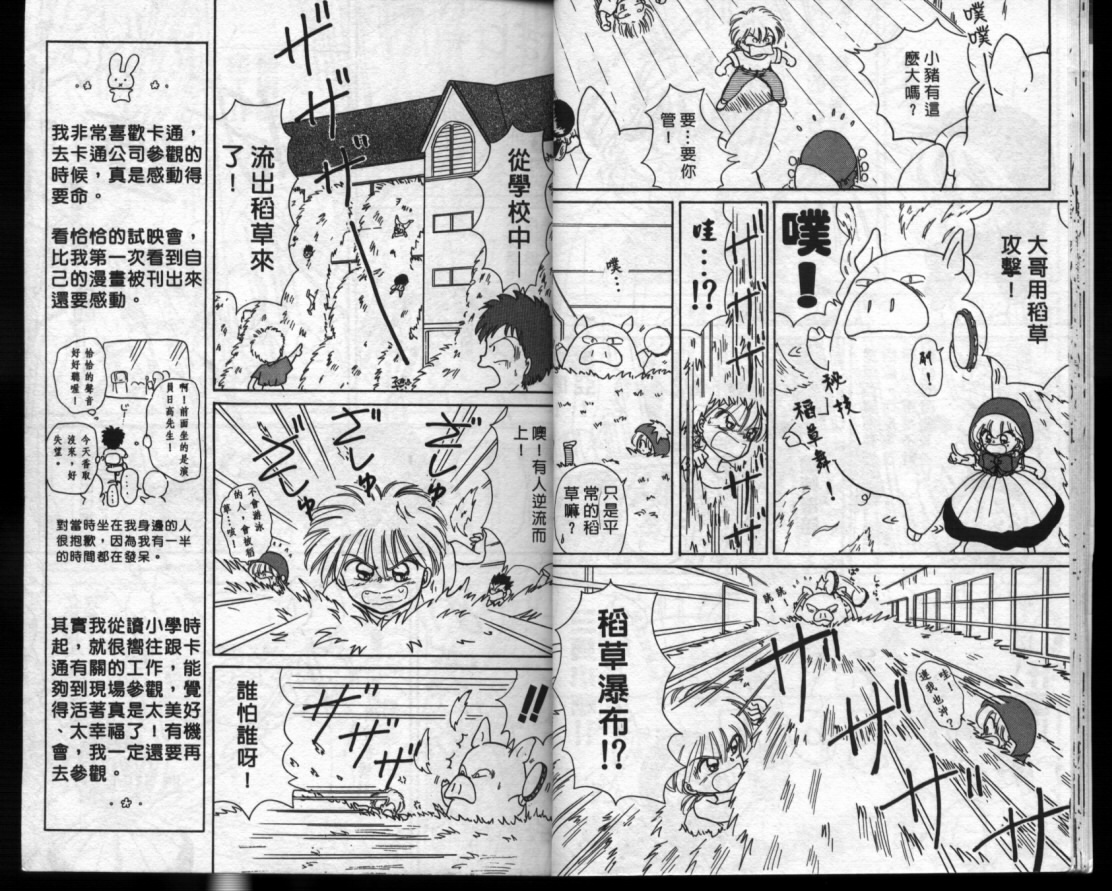 噗噗—
小豬有這
麼大嗎？
要…要你
管！
大哥用稻草
攻擊！
噗！
咧！
秘技—
「稻草舞」！
哇…!?
ザザザ
噗…
只是平
常的稻
草嘛？
稻草瀑布!?
ザザザザ
哇！
連我也沖？
ザザザ
從學校中—
流出稻草來
了！
噢！有人逆流而
上！
ざじゅ
ざじゅ
ざじゅ
不會游泳
的人，會被稻
草…咳！
!!
ザザザ
誰怕誰呀！
我非常喜歡卡通，
去卡通公司參觀的
時候，真是感動得
要命。
看恰恰的試映會，
比我第一次看到自
己的漫畫被刊出來
還要感動。
恰恰的聲音
好好聽喔！
啊！前面坐的是演
員日高先生！
今天香取
沒來，好
失望。
對當時坐在我身邊的人
很抱歉，因為我有一半
的時間都在發呆。
其實我從讀小學時
起，就很嚮往跟卡
通有關的工作，能
夠到現場參觀，覺
得活著真是太美好
、太幸福了！有機
會，我一定還要再
去參觀。